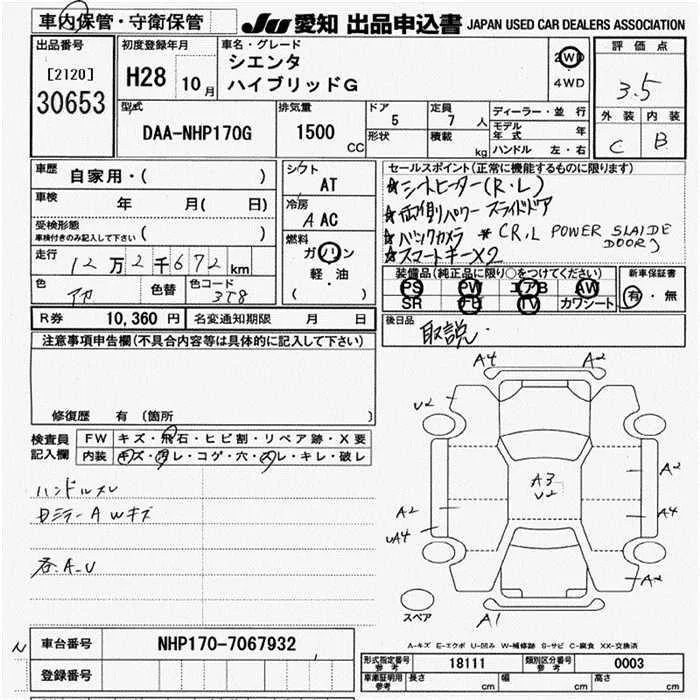 車内保管・守衛保管
JU 愛知 出品申込書 JAPAN USED CAR DEALERS ASSOCIATION
出品番号
[2120]
30653
初度登録年月
H28 10月
車名・グレード
シエンタ
ハイブリッドG
2WD
4WD
評価点
3.5
外装 内装
C B
型式
DAA-NHP170G
排気量
1500 CC
ドア
5
定員
7 人
形状
積載
kg
ディーラー・並行
モデル年式 年
ハンドル 左・右
車歴
自家用・( )
車検
年 月( 日)
受検形態
車検付きのみ記入して下さい ( )
走行
12万2千672km
色 アカ 色替 色コード 3T8
シフト
AT
冷房
A AC
燃料
ガソリン
軽・油
( )
セールスポイント(正常に機能するものに限ります)
★シートヒーター(R・L)
★両側パワースライドドア
★バックカメラ *(R,L POWER SLAIDE DOOR)
★スマートキーX2
装備品(純正品に限り○をつけてください)
PS PW エアB AW
SR TV カワシート
新車保証書
有・無
R券 10,360円 名変通知期限 月 日
後日品
取説・
注意事項申告欄(不具合内容等は具体的に記入して下さい)
修復歴 有 (箇所 )
検査員記入欄
FW キズ・飛石・ヒビ割・リペア跡・X要
内装 キズ・汚レ・コゲ・穴・スレ・キレ・破レ
ハンドルスレ
A Wキズ
各A.U
A4 A2
U2
A3
U2
A2
A2
A4
UA4
A2
スペア
A1
A-キズ E-エクボ U-凹み W-補修跡 S-サビ C-腐食 XX-交換済
N
車台番号 NHP170-7067932
登録番号
形式指定番号 参考 18111 類別区分番号 参考 0003
車庫証明 参考 長さ cm 幅 cm 高さ cm